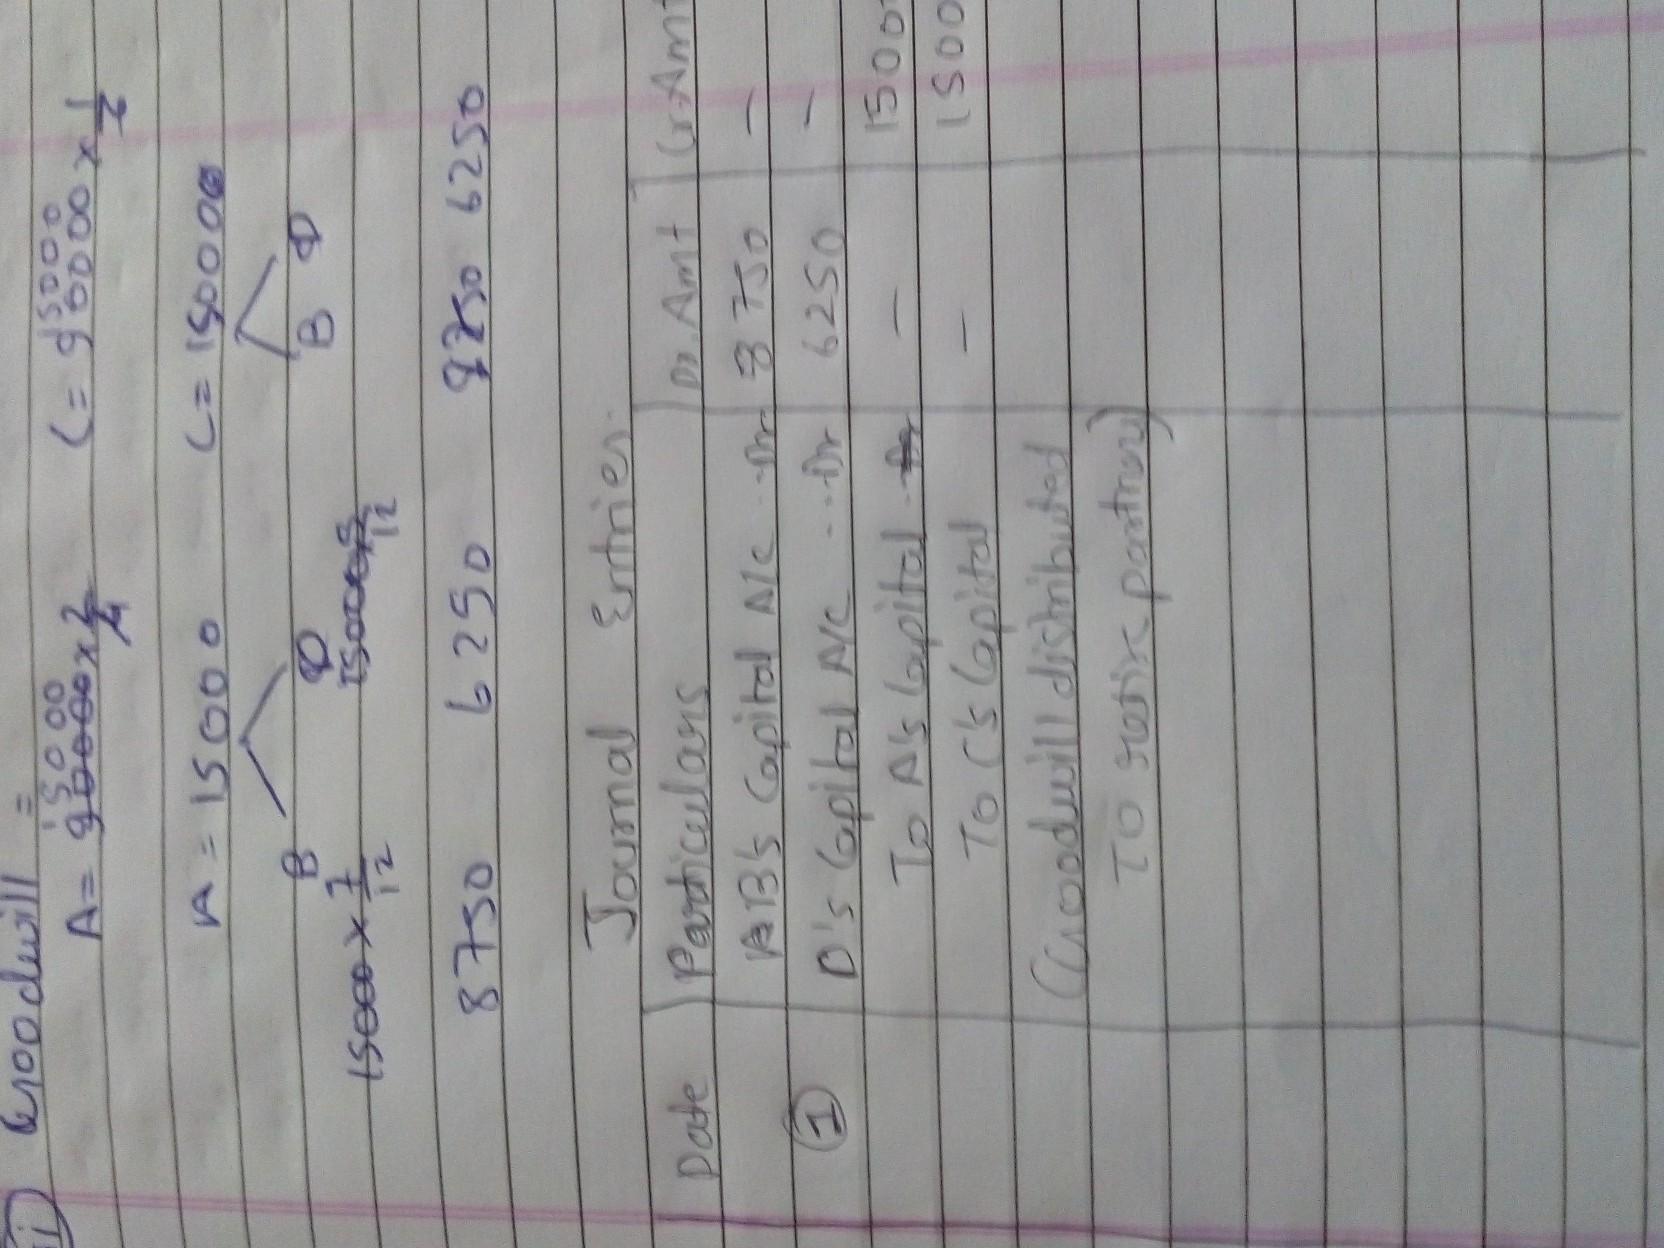 ii Goodwill =
A = 90000 x 2/6 15000 C = 90000 x 1/6 15000
A = 15000 C = 15000
B D B D
15000 x 7/12 15000 x 5/12
8750 6250 8750 6250
Journal Entries.
Date Particulars Dr. Amt Cr. Amt
B's Capital A/c ..Dr 8750 —
1 D's Capital A/c ...Dr 6250 —
To A's Capital — 1500
To C's Capital — 1500
(Goodwill distributed
To partner)